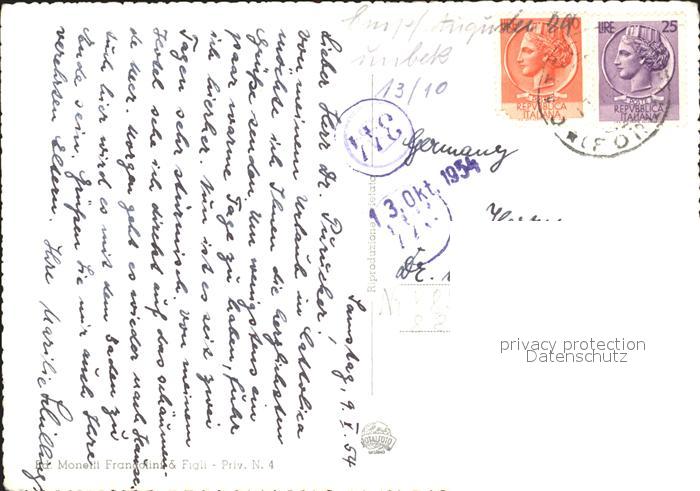 Samstag, 9. X. 54
Lieber Herr Dr. Purucker!
Von meinem Urlaub in Cattolica
möchte ich Ihnen die herzlichsten
Grüße senden. Um wenigstens ein
paar warme Tage zu haben, fuhr
ich hierher. Nun ist es seit zwei
Tagen sehr stürmisch. Von meinem
Hotel sehe ich direkt auf das schäumen-
de Meer. Morgen geht es wieder nach Hause,
auch hier wird es mit dem Baden zu
Ende sein. Grüßen Sie mir auch Ihre
verehrten Eltern. Ihre Schilling
unbek
13/10
LIRE
POSTE
REPVBBLICA
ITALIANA
LIRE 25
POSTE
REPVBBLICA
ITALIANA
(FO
344
Germany
13. Okt. 1954
Herrn
Dr.
Riproduzione
privacy protection
Datenschutz
Ed. Monetti Frangolini & Figli - Priv. N. 4